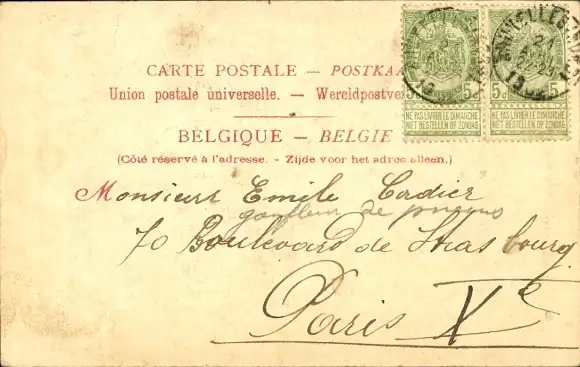 CARTE POSTALE — POSTKAA
Union postale universelle. — Wereldpostve
BELGIQUE — BELGIE
(Côté réservé à l'adresse. - Zijde voor het adres alleen.)
5c 5c
NE PAS LIVRER LE DIMANCHE NE PAS LIVRER LE DIMANCHE
NIET BESTELLEN OP ZONDAG NIET BESTELLEN OP ZONDAG
BRUXELLES
21
Monsieur Emile Cordier
gonfleur de pneus
70 Boulevard de Strasbourg
Paris Xe